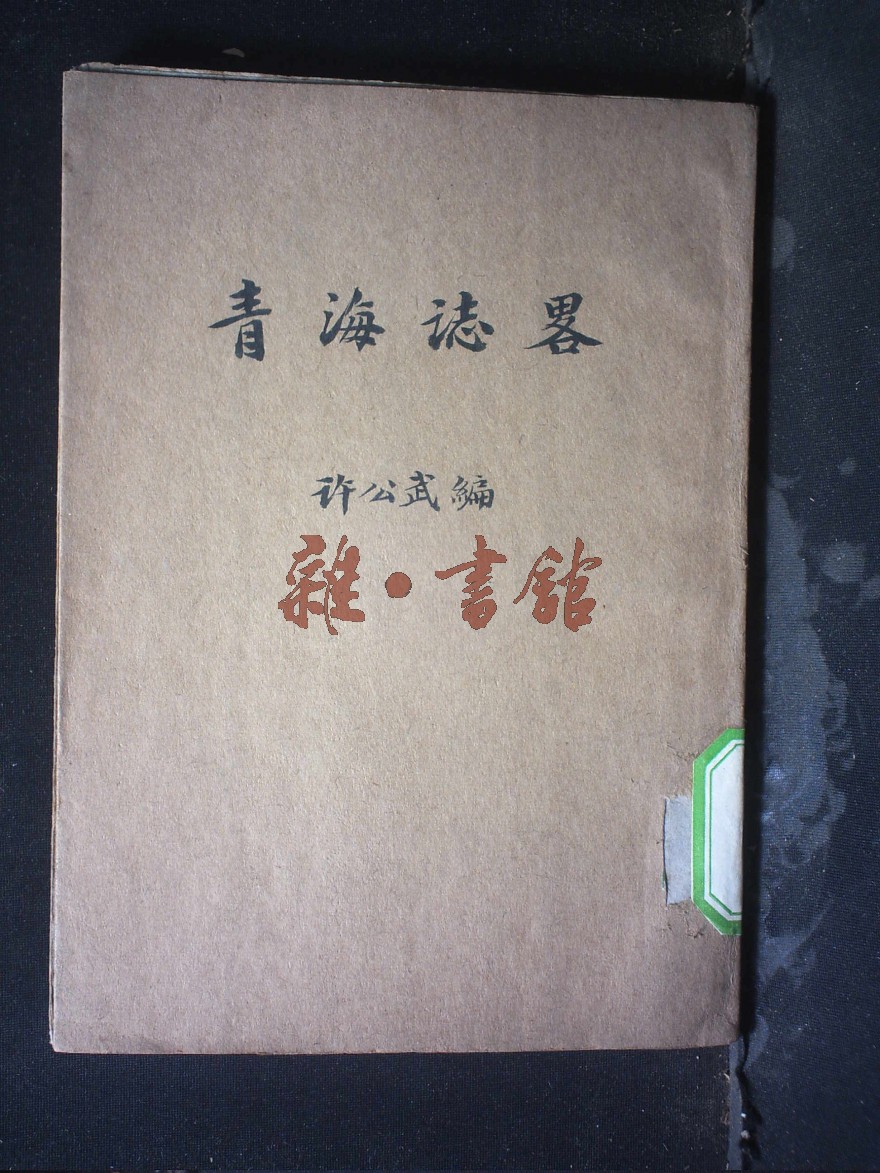 青海誌畧
许公武編
雜·書館